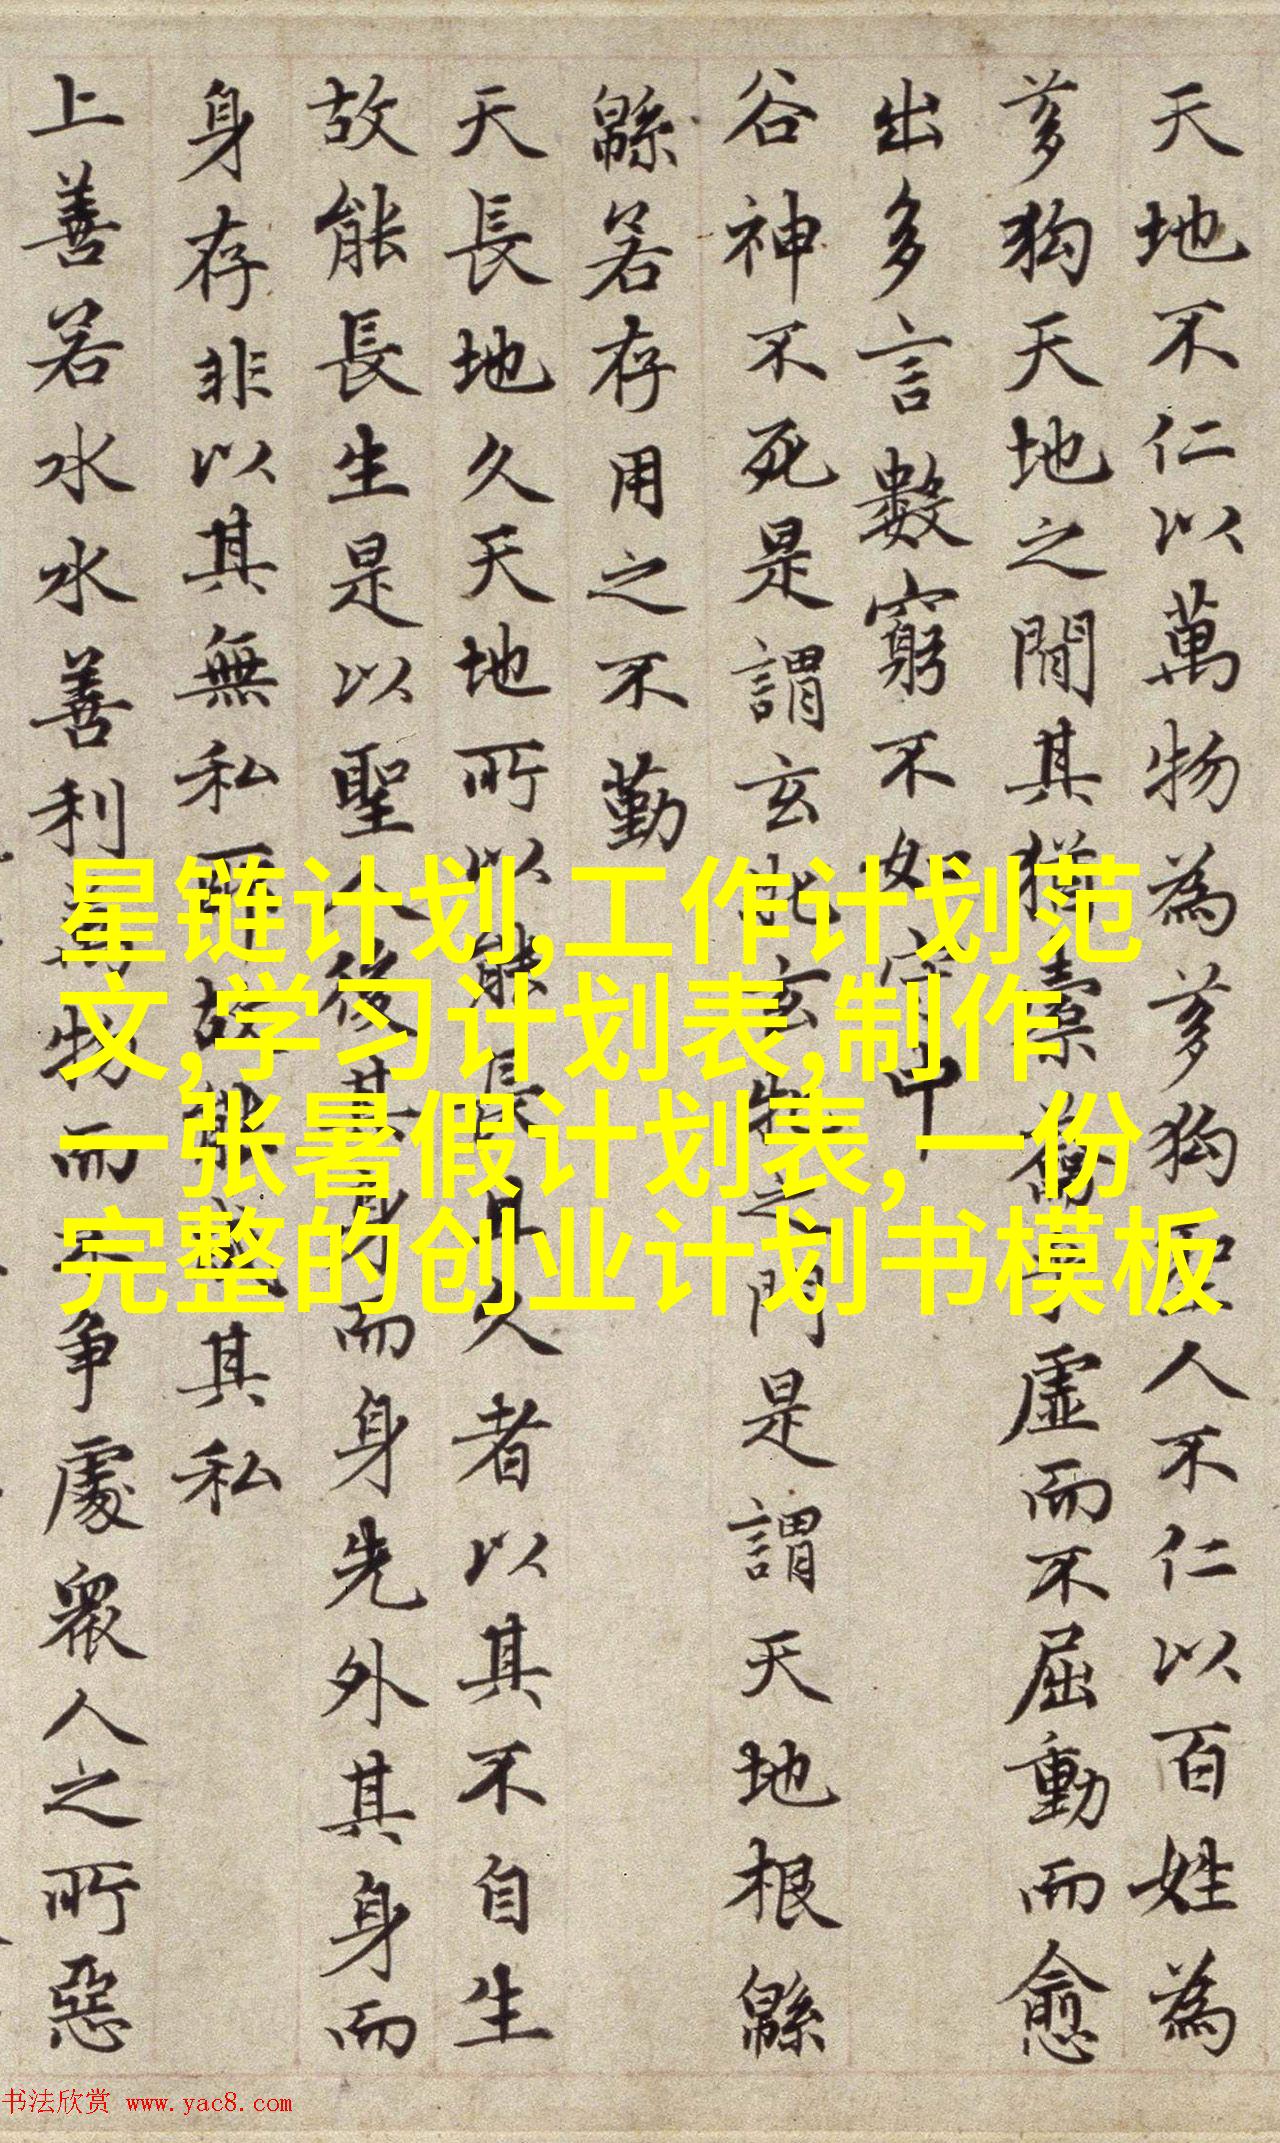 天地不仁以萬物為芻狗聖人不仁以百姓為
芻狗天地之間其猶橐籥乎虛而不屈動而愈
出多言數窮不如守中
谷神不死是謂玄牝玄牝之門是謂天地根緜
緜若存用之不勤
天長地久天地所以能長且久者以其不自生
故能長生是以聖人後其身而身先外其身而
身存非以其無私故能成其私
上善若水水善利萬物而不争處衆人之所惡
星链计划,工作计划范
文,学习计划表,制作
一张暑假计划表,一份
完整的创业计划书模板
书法欣赏 www.yac8.com